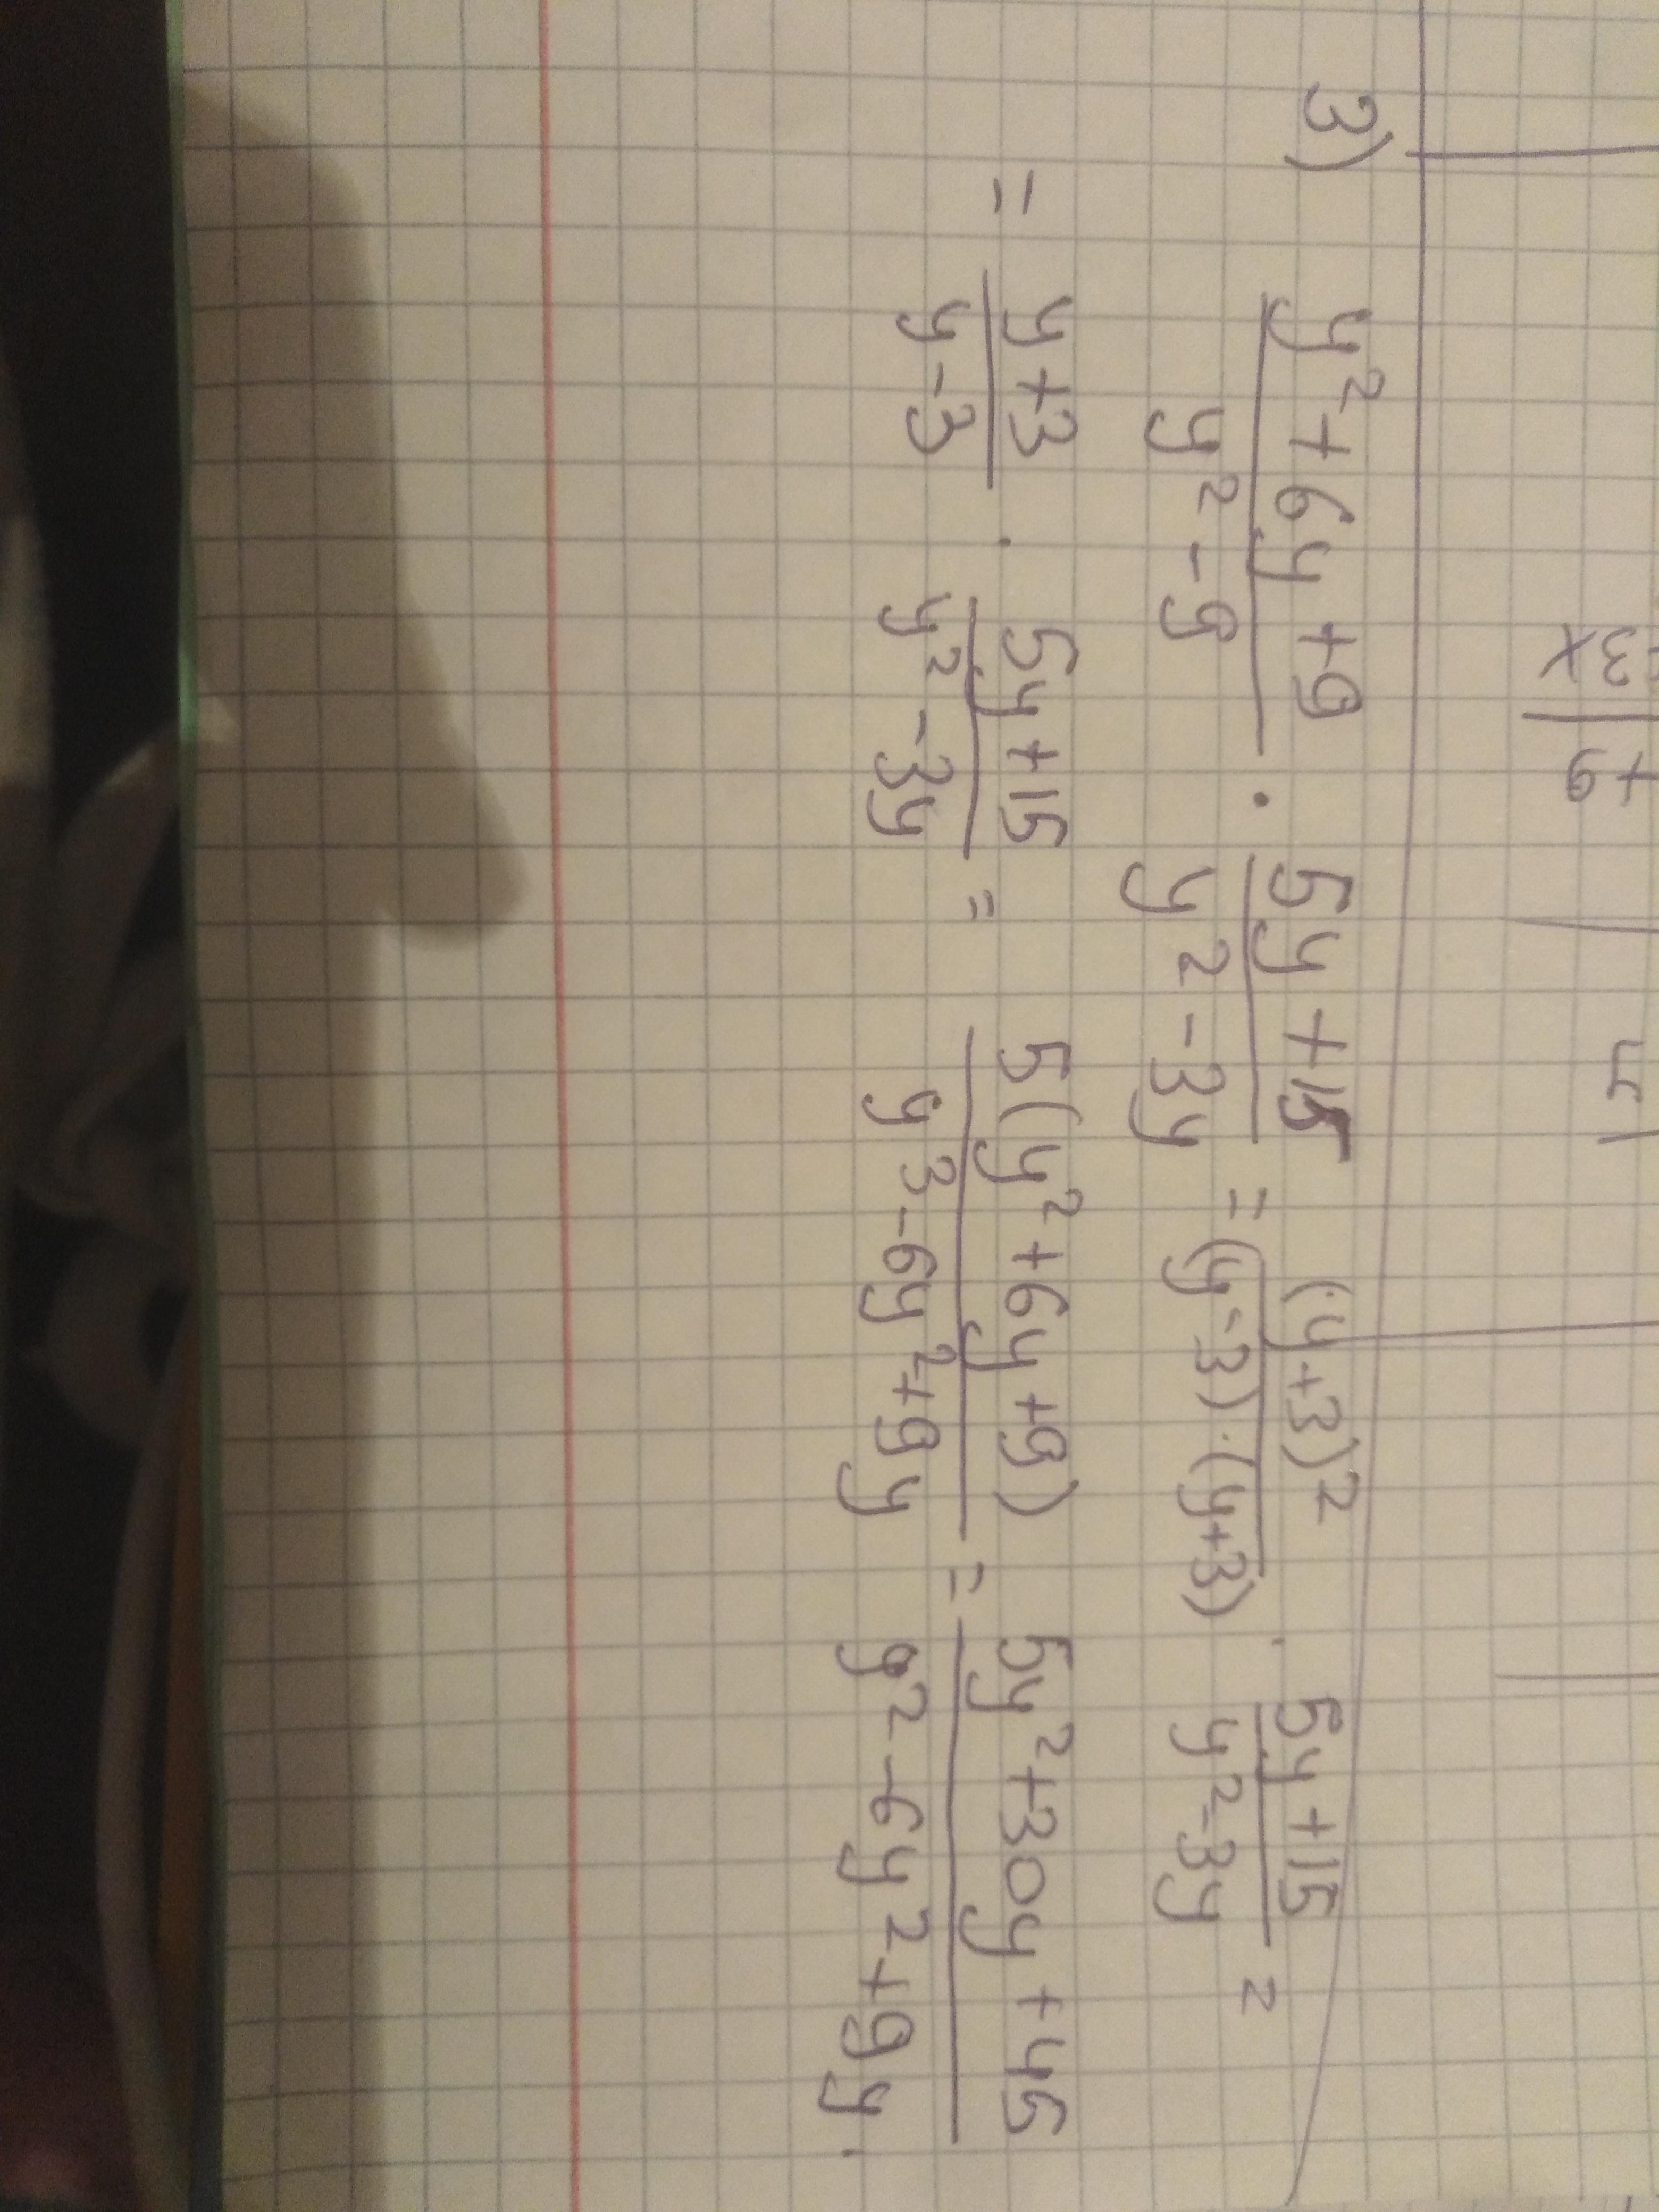 3) (y² + 6y + 9)/(y² - 9) · (5y + 15)/(y² - 3y) = (y+3)²/((y-3)·(y+3)) · (5y+15)/(y²-3y) =
= (y+3)/(y-3) · (5y+15)/(y²-3y) = 5(y²+6y+9)/(y³-6y²+9y) = (5y²+30y+45)/(y²-6y²+9y).